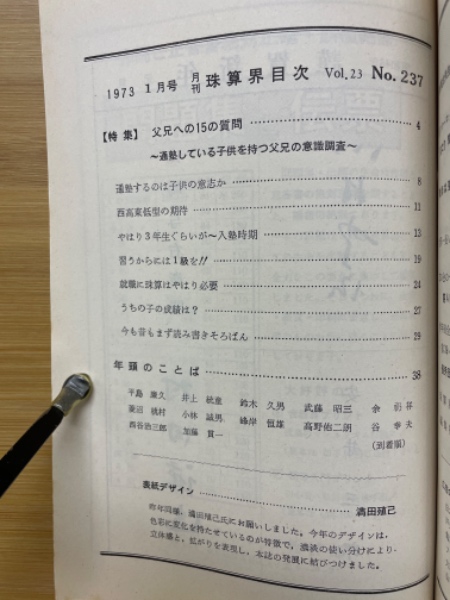 1973 1月号 月刊 珠算界目次 Vol.23 No.237
【特集】 父兄への15の質問 4
～通塾している子供を持つ父兄の意識調査～
通塾するのは子供の意志か 8
西高東低型の期待 11
やはり3年生ぐらいが～入塾時期 13
習うからには1級を!! 19
就職に珠算はやはり必要 24
うちの子の成績は? 27
今も昔もまず読み書きそろばん 29
年頭のことば 38
平島 兼久 井上 統童 鈴木 久男 武藤 昭三 余
菱沼 桃村 小林 誠男 峰岸 恒雄 高野佑二朗 谷 幸夫
西谷治三郎 加藤 貫一 (到着順)
表紙デザイン 満田殖己
昨年同様、満田殖己氏にお願いしました。今年のデザインは、
色彩に変化を持たせているのが特徴で、濃淡の使い分けにより、
立体感と、拡がりを表現し、本誌の発展に結びつけました。